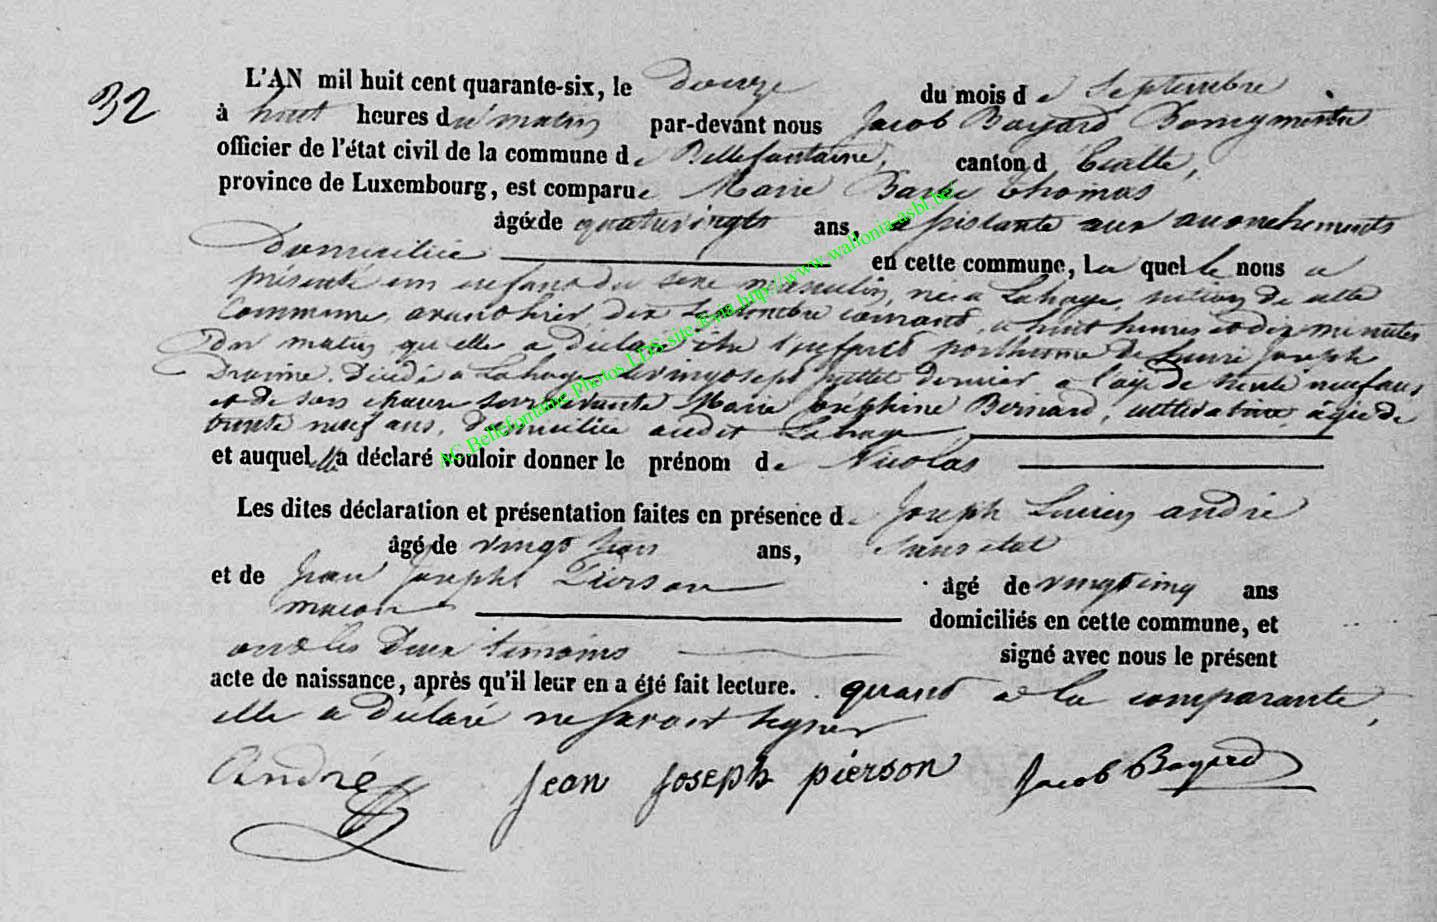 32
L'AN mil huit cent quarante-six, le douze du mois de Septembre
à huit heures du matin par-devant nous Jacob Bayard Bourgmestre
officier de l'état civil de la commune de Bellefontaine, canton d'Etalle,
province de Luxembourg, est comparue Marie Barbe Thomas
âgée de quatrevingts ans, assistante aux accouchements
domiciliée en cette commune, la quelle nous a
présenté un enfant du sexe masculin, né à Lahage, section de cette
Commune, avant hier, dix Septembre courant, à huit heures et dix minutes
du matin, qu'elle a déclaré être l'enfant posthume de Henri Joseph
décédé à Lahage le vingt sept Juillet dernier à l'age de trente neuf ans
et de son épouse survivante Marie Joséphine Bernard, cultivatrice, âgée de
trente neuf ans, domiciliée audit Lahage
et auquel elle a déclaré vouloir donner le prénom de Nicolas
Les dites déclaration et présentation faites en présence de Joseph Lucien André
âgé de vingt trois ans, Sans état
et de Jean Joseph Pierson âgé de vingt cinq ans
maçon domiciliés en cette commune, et
ont les deux témoins signé avec nous le présent
acte de naissance, après qu'il leur en a été fait lecture. quant à la comparante,
elle a déclaré ne savoir signer
André Jean Joseph pierson Jacob Bayard
AC Bellefontaine Photos LDS site Asia http://www.wallonia-asbl.be